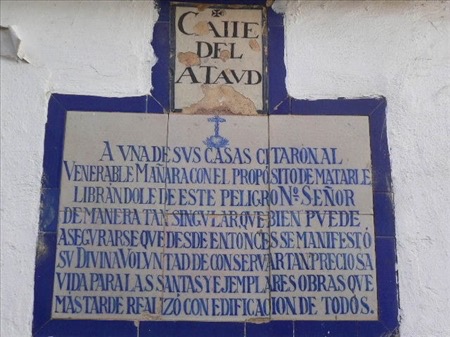 CALLE
DEL
ATAUD
A VNA DE SVS CASAS CITARON AL
VENERABLE MAÑARA CON EL PROPOSITO DE MATARLE
LIBRANDOLE DE ESTE PELIGRO Nº. SEÑOR
DE MANERA TAN SINGVLAR, QVE BIEN PVEDE
ASEGVRARSE QVE DESDE ENTONCES SE MANIFESTÓ
SV DIVINA VOLVNTAD DE CONSERVAR TAN PRECIOSA
VIDA PARA LAS SANTAS Y EJEMPLARES OBRAS QVE
MAS TARDE REALIZÓ CON EDIFICACION DE TODOS.